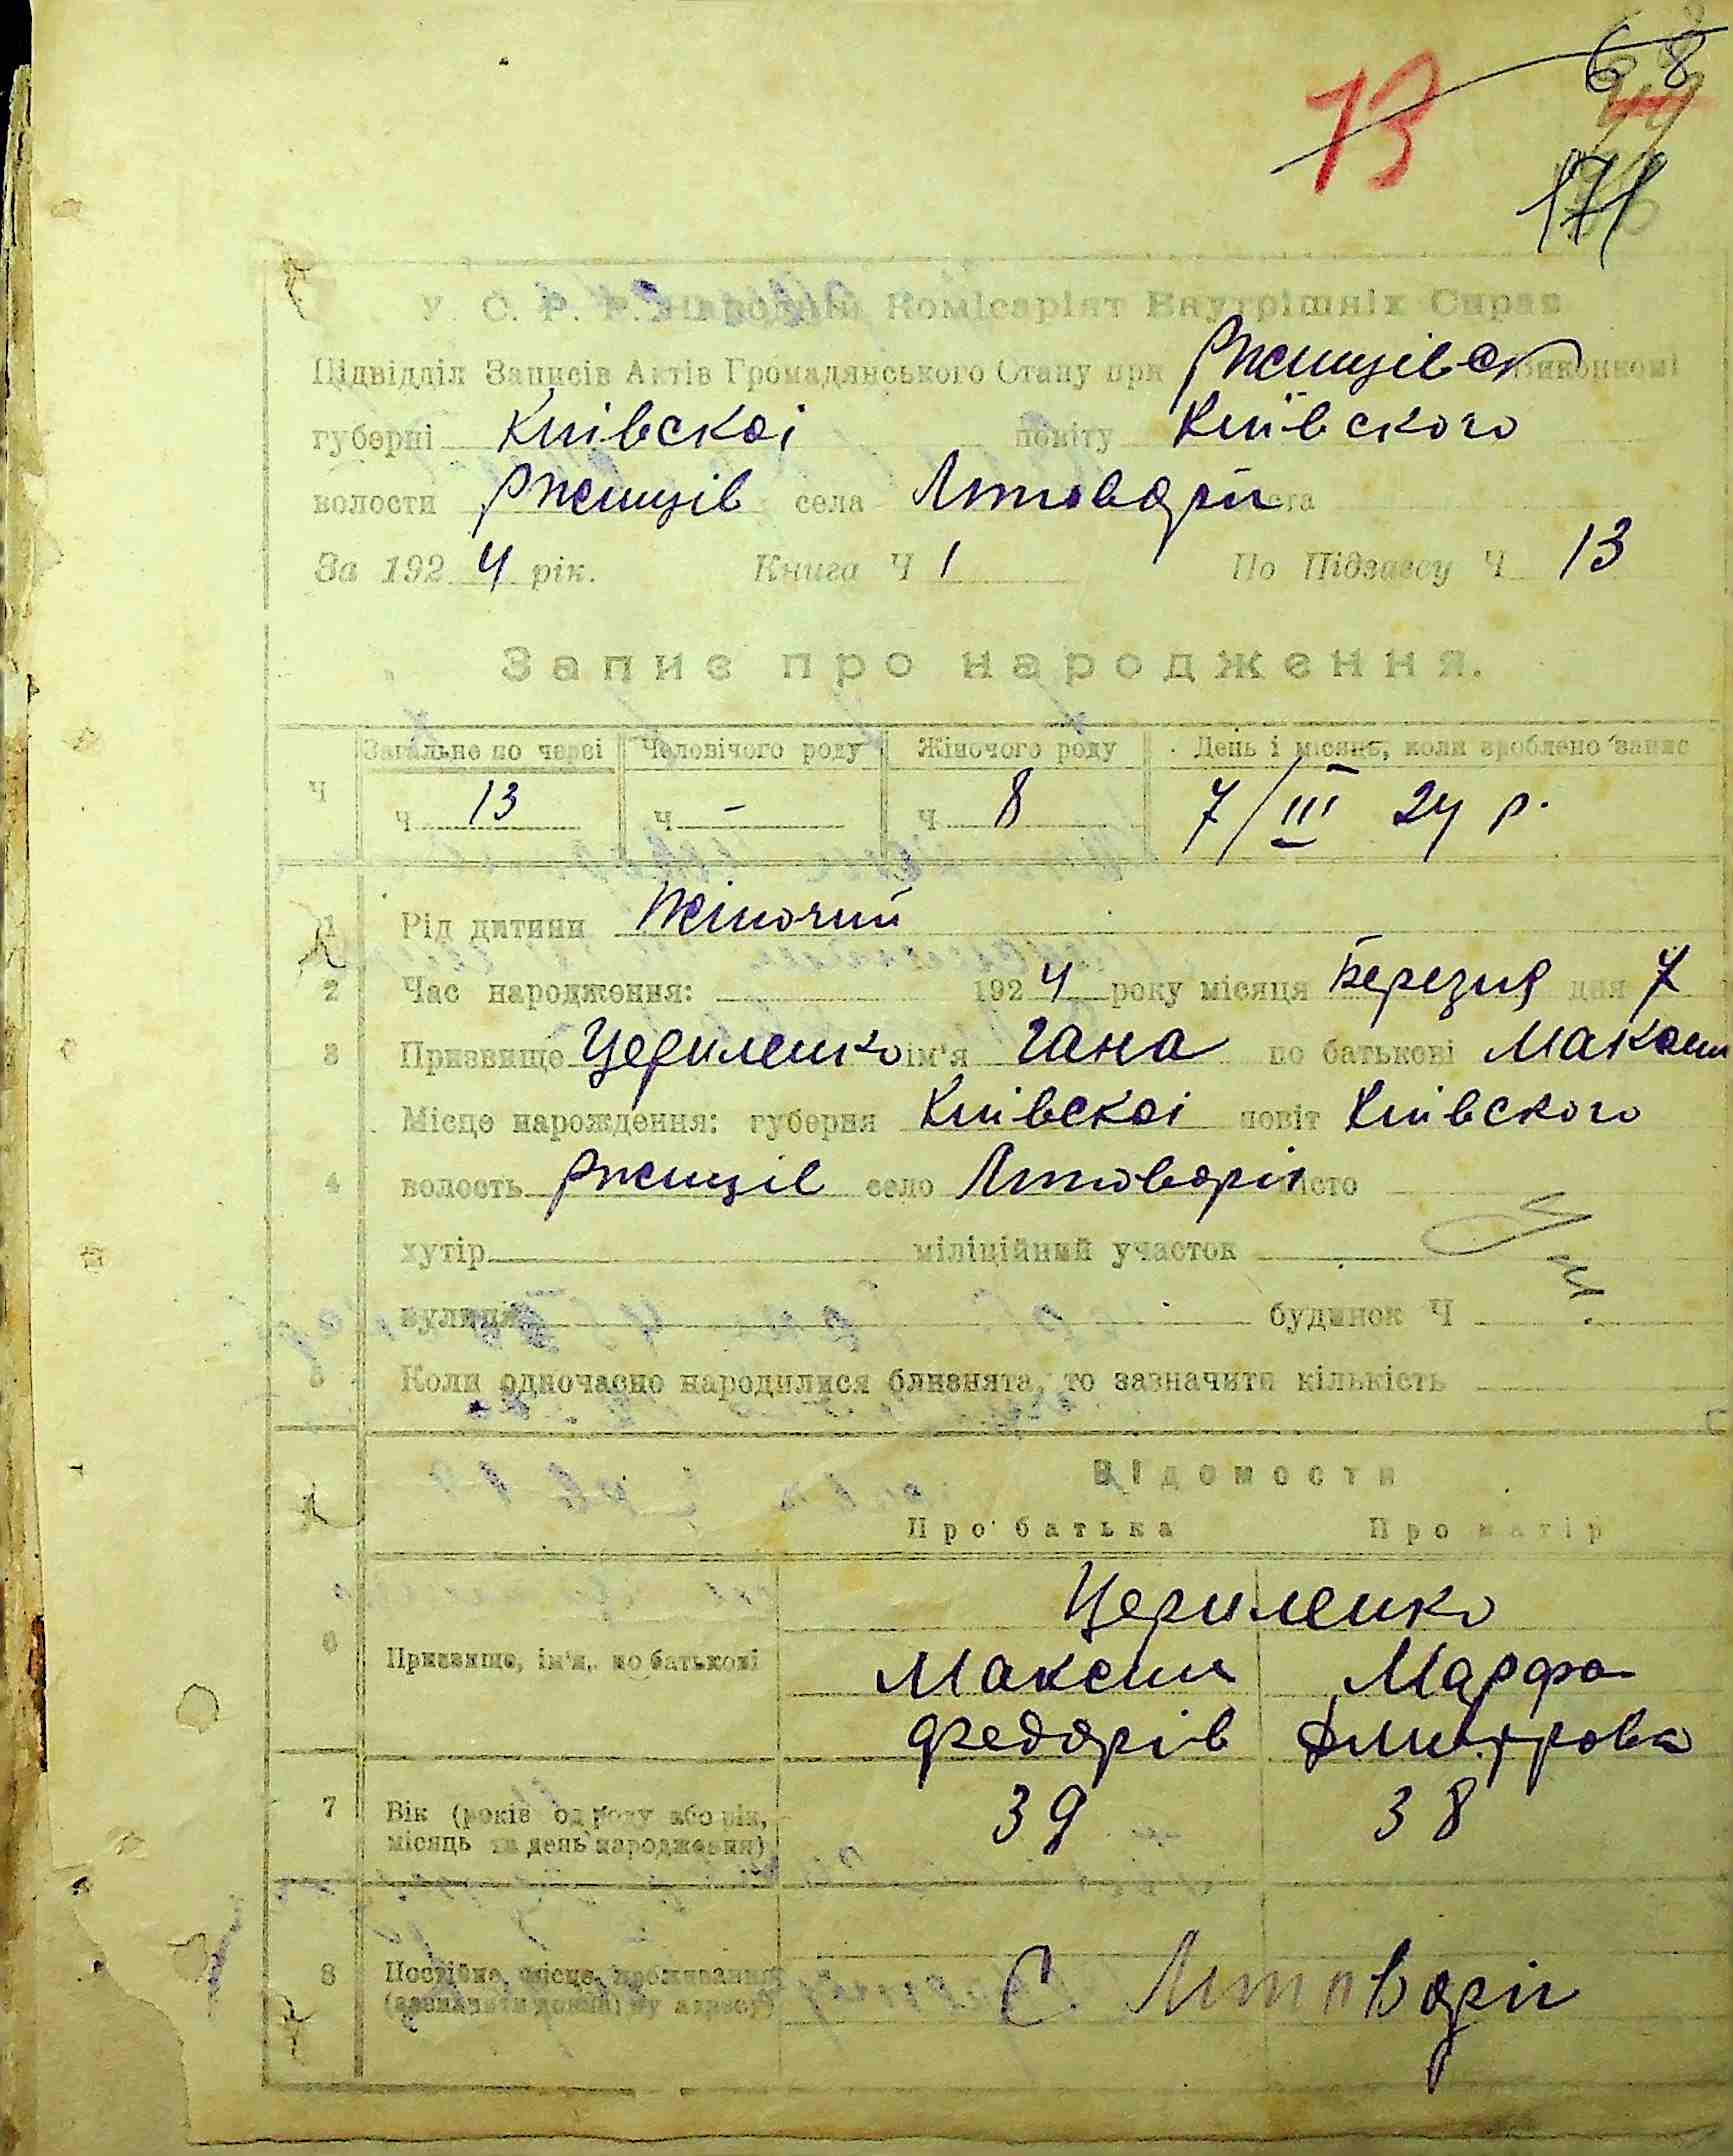 68
13
171
У. С. Р. Р. Народній Комісаріят Внутрішніх Справ
Підвідділ Записів Актів Громадянського Стану при Ржищівск Виконкомі
губерні Київскоі повіту Київского
волости Ржищів села Литовари
За 1924 рік. Книга Ч 1 По Підзагсу Ч 13
Запис про народження.
Загальне по черзі Чоловічого роду Жіночого роду День і місяць, коли зроблено запис
Ч Ч 13 Ч – Ч 8 7/III 24 р.
1 Рід дитини Жіночий
2 Час народження: 1924 року місяця Березня дня 7
3 Призвище Цериленко ім'я Гана по батькові Максим
Місце нарождення: губерня Київскоі повіт Київского
4 волость Ржищів село Литоварі місто
хутір міліційний участок
вулиця будинок Ч
5 Коли одночасно народилися близнята, то зазначити кількість
Відомости
Про батька Про матір
Цериленко
6 Призвище, ім'я, по батькові Максим Марфа
Федорів Дмитрова
7 Вік (років од роду або рік, 39 38
місяць та день народження)
8 Постійне місце проживання С Литовари